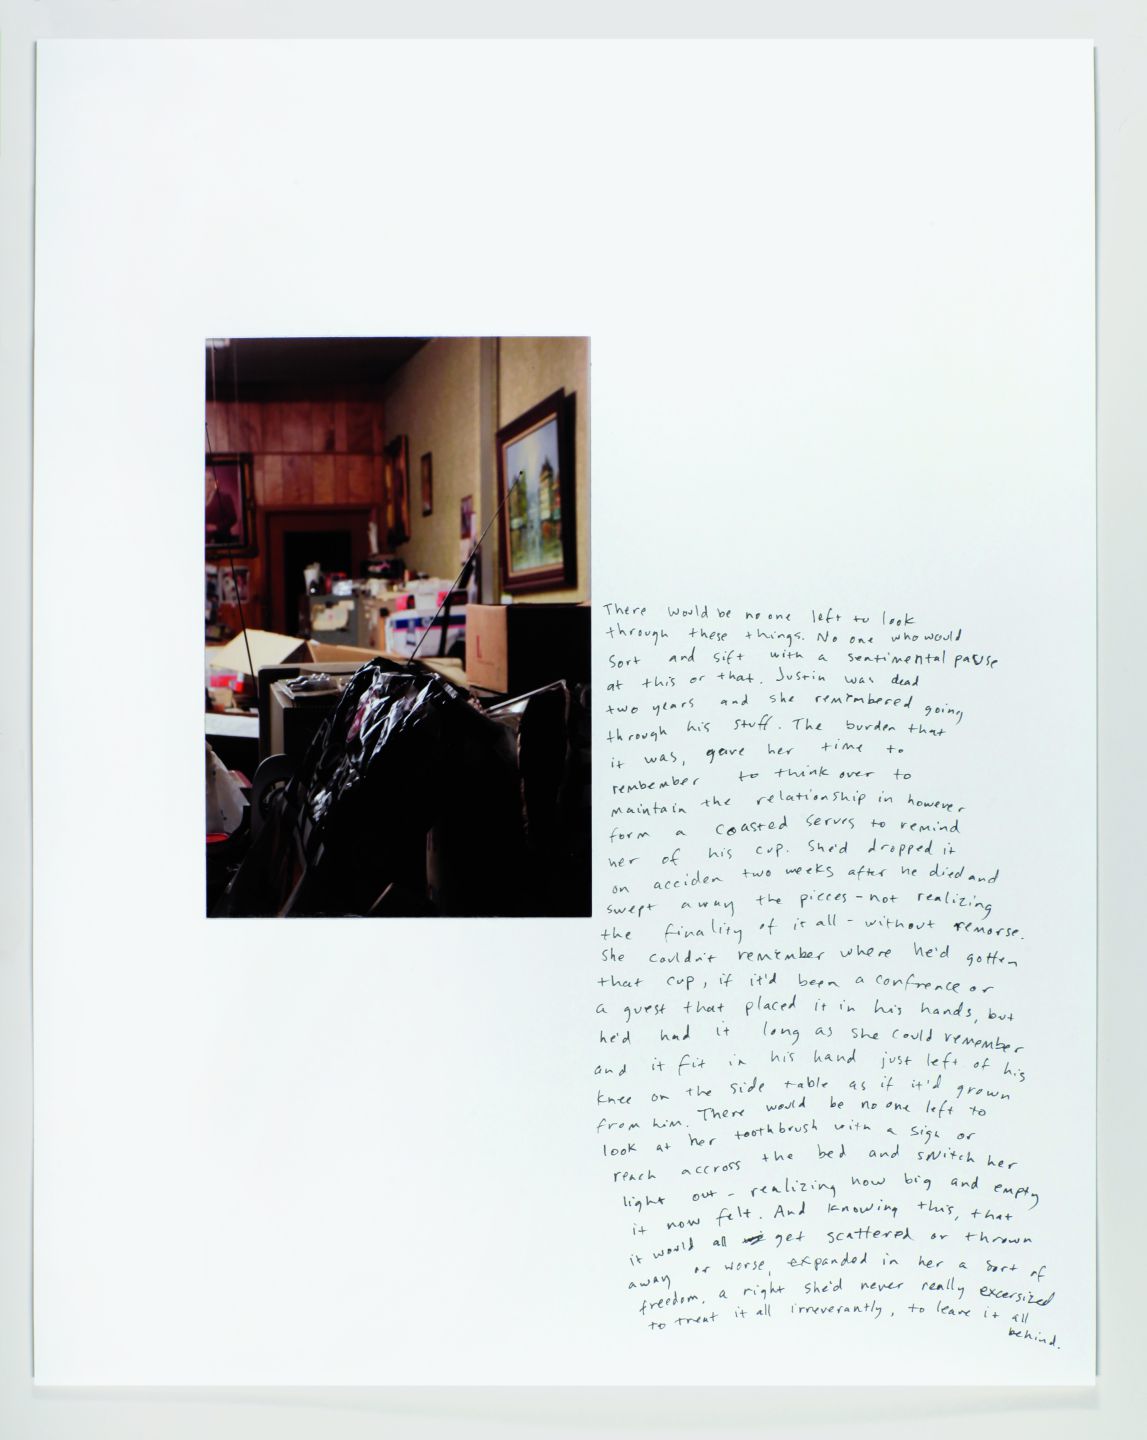 There would be no one left to look
through these things. No one who would
sort and sift with a sentimental pause
at this or that. Justin was dead
two years and she remembered going
through his stuff. The burden that
it was, gave her time to
rembember to think over to
maintain the relationship in however
form a coasted serves to remind
her of his cup. She'd dropped it
on acciden two weeks after he died and
swept away the pieces - not realizing
the finality of it all - without remorse.
She couldn't remember where he'd gotten
that cup, if it'd been a confrence or
a guest that placed it in his hands, but
he'd had it long as she could remember
and it fit in his hand just left of his
knee on the side table as if it'd grown
from him. There would be no one left to
look at her toothbrush with a sigh or
reach accross the bed and switch her
light out - realizing how big and empty
it now felt. And knowing this, that
it would all get scattered or thrown
away or worse, expanded in her a sort of
freedom, a right she'd never really excersized
to treat it all irreverantly, to leave it all
behind.
L